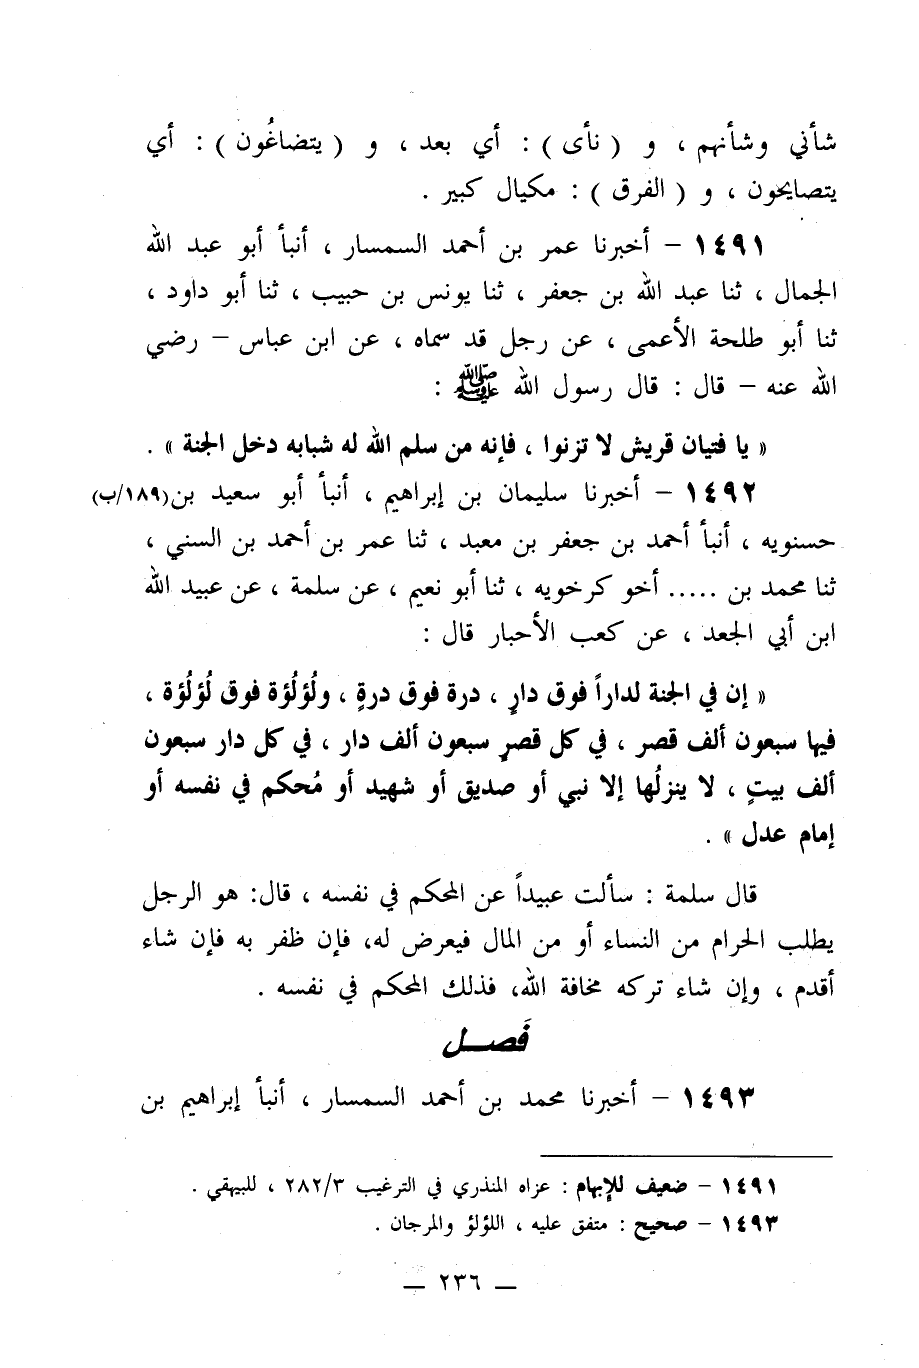 شأني وشأنهم ، و ( نأى ) : أي بعد ، و ( يتضاغُون ) : أي
يتصايحون ، و ( الفرق ) : مكيال كبير .
١٤٩١ – أخبرنا عمر بن أحمد السمسار ، أنبأ أبو عبد الله
الجمال ، ثنا عبد الله بن جعفر ، ثنا يونس بن حبيب ، ثنا أبو داود ،
ثنا أبو طلحة الأعمى ، عن رجل قد سماه ، عن ابن عباس – رضي
الله عنه – قال : قال رسول الله ﷺ :
« يا فتيان قريش لا تزنوا ، فإنه من سلم الله له شبابه دخل الجنة » .
١٤٩٢ – أخبرنا سليمان بن إبراهيم ، أنبأ أبو سعيد بن (١٨٩/ب)
حسنويه ، أنبأ أحمد بن جعفر بن معبد ، ثنا عمر بن أحمد بن السني ،
ثنا محمد بن ..... أخو كرخويه ، ثنا أبو نعيم ، عن سلمة ، عن عبيد الله
ابن أبي الجعد ، عن كعب الأحبار قال :
« إن في الجنة لداراً فوق دارٍ ، درة فوق درةٍ ، ولُؤلُؤة فوق لُؤلُؤة ،
فيها سبعون ألف قصر ، في كل قصرٍ سبعون ألف دار ، في كل دار سبعون
ألف بيتٍ ، لا ينزلُها إلا نبي أو صديق أو شهيد أو مُحكم في نفسه أو
إمام عدل » .
قال سلمة : سألت عبيداً عن المحكم في نفسه ، قال: هو الرجل
يطلب الحرام من النساء أو من المال فيعرض له، فإن ظفر به فإن شاء
أقدم ، وإن شاء تركه مخافة الله، فذلك المحكم في نفسه .
فَصــل
١٤٩٣ – أخبرنا محمد بن أحمد السمسار ، أنبأ إبراهيم بن
١٤٩١ – ضعيف للإبهام : عزاه المنذري في الترغيب ٢٨٢/٣ ، للبيهقي .
١٤٩٣ – صحيح : متفق عليه ، اللؤلؤ والمرجان .
— ٢٣٦ —